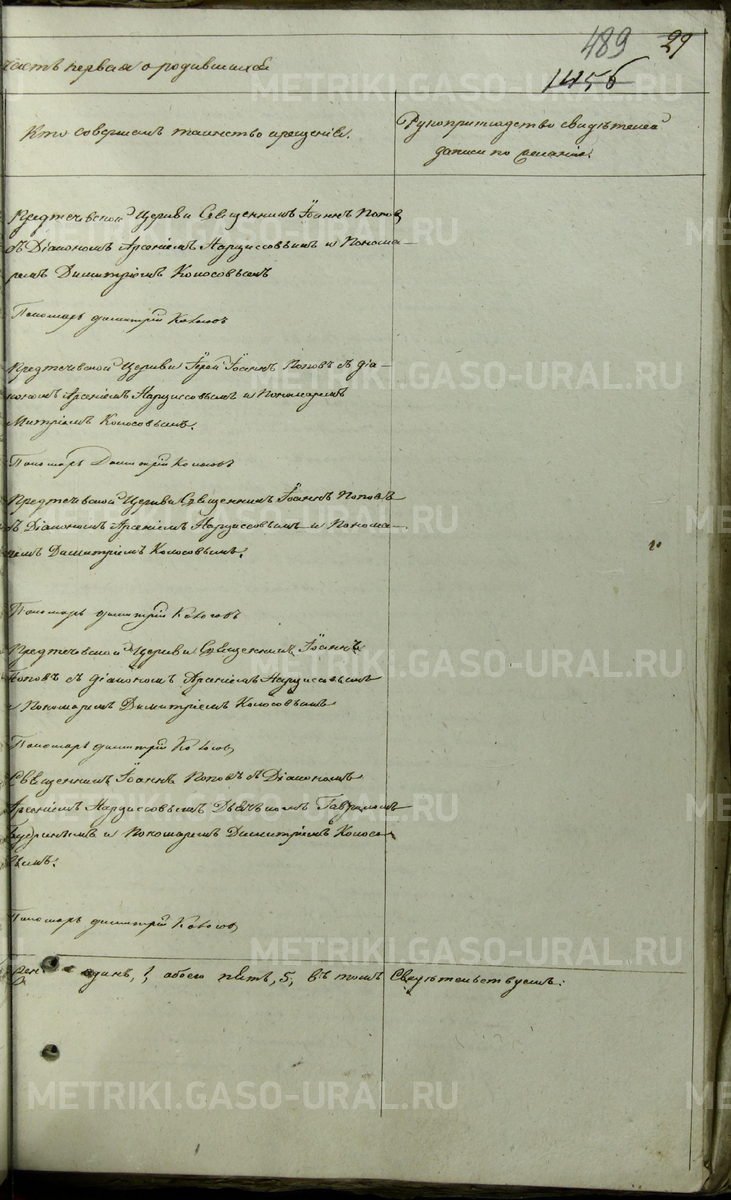 489 29
1456
Часть первая о родившихся
METRIKI.GASO-URAL.RU
Кто совершалъ таинство крещенія.
Рукоприкладство свидѣтелей
записи по желанію.
Предтечевской Церкви Священникъ Іоаннъ Попов
съ Діакономъ Арсеніемъ Нарциссовымъ и Понома-
ремъ Димитріемъ Колосовымъ
Пономарь Димитрій Колосовъ
Предтечевской Церкви Іерей Іоаннъ Поповъ съ діа-
кономъ Арсеніемъ Нарциссовымъ и Пономаремъ
Митріемъ Колосовымъ.
Пономарь Димитрій Колосовъ
Предтечевской Церкви Священникъ Іоаннъ Поповъ
съ Діакономъ Арсеніемъ Нарциссовымъ и Понома-
ремъ Димитріемъ Колосовымъ.
Пономарь Димитрій Колосовъ
Предтечевской Церкви Священникъ Іоаннъ
Поповъ съ діакономъ Арсеніемъ Нарциссовымъ
и Пономаремъ Димитріемъ Колосовымъ
Пономарь Димитрій Колосовъ
Священникъ Іоаннъ Поповъ съ Діакономъ
Арсеніемъ Нарциссовымъ Дьячькомъ Гавриломъ
и Пономаремъ Димитріемъ Колосо-
вымъ.
Пономарь Димитрій Колосовъ
одинъ, 1, обоего пять, 5, въ томъ Свидѣтельствуемъ:
METRIKI.GASO-URAL.RU